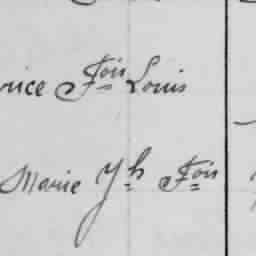 rice Fois Louis
Marie Jh Fois